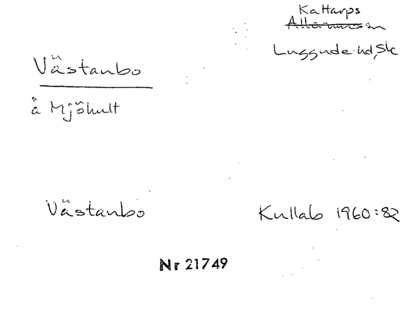 Kattarps
Luggude hd, Sk
Västanbo
å Mjöhult
Västanbo
Kullab 1960:82
Nr 21749